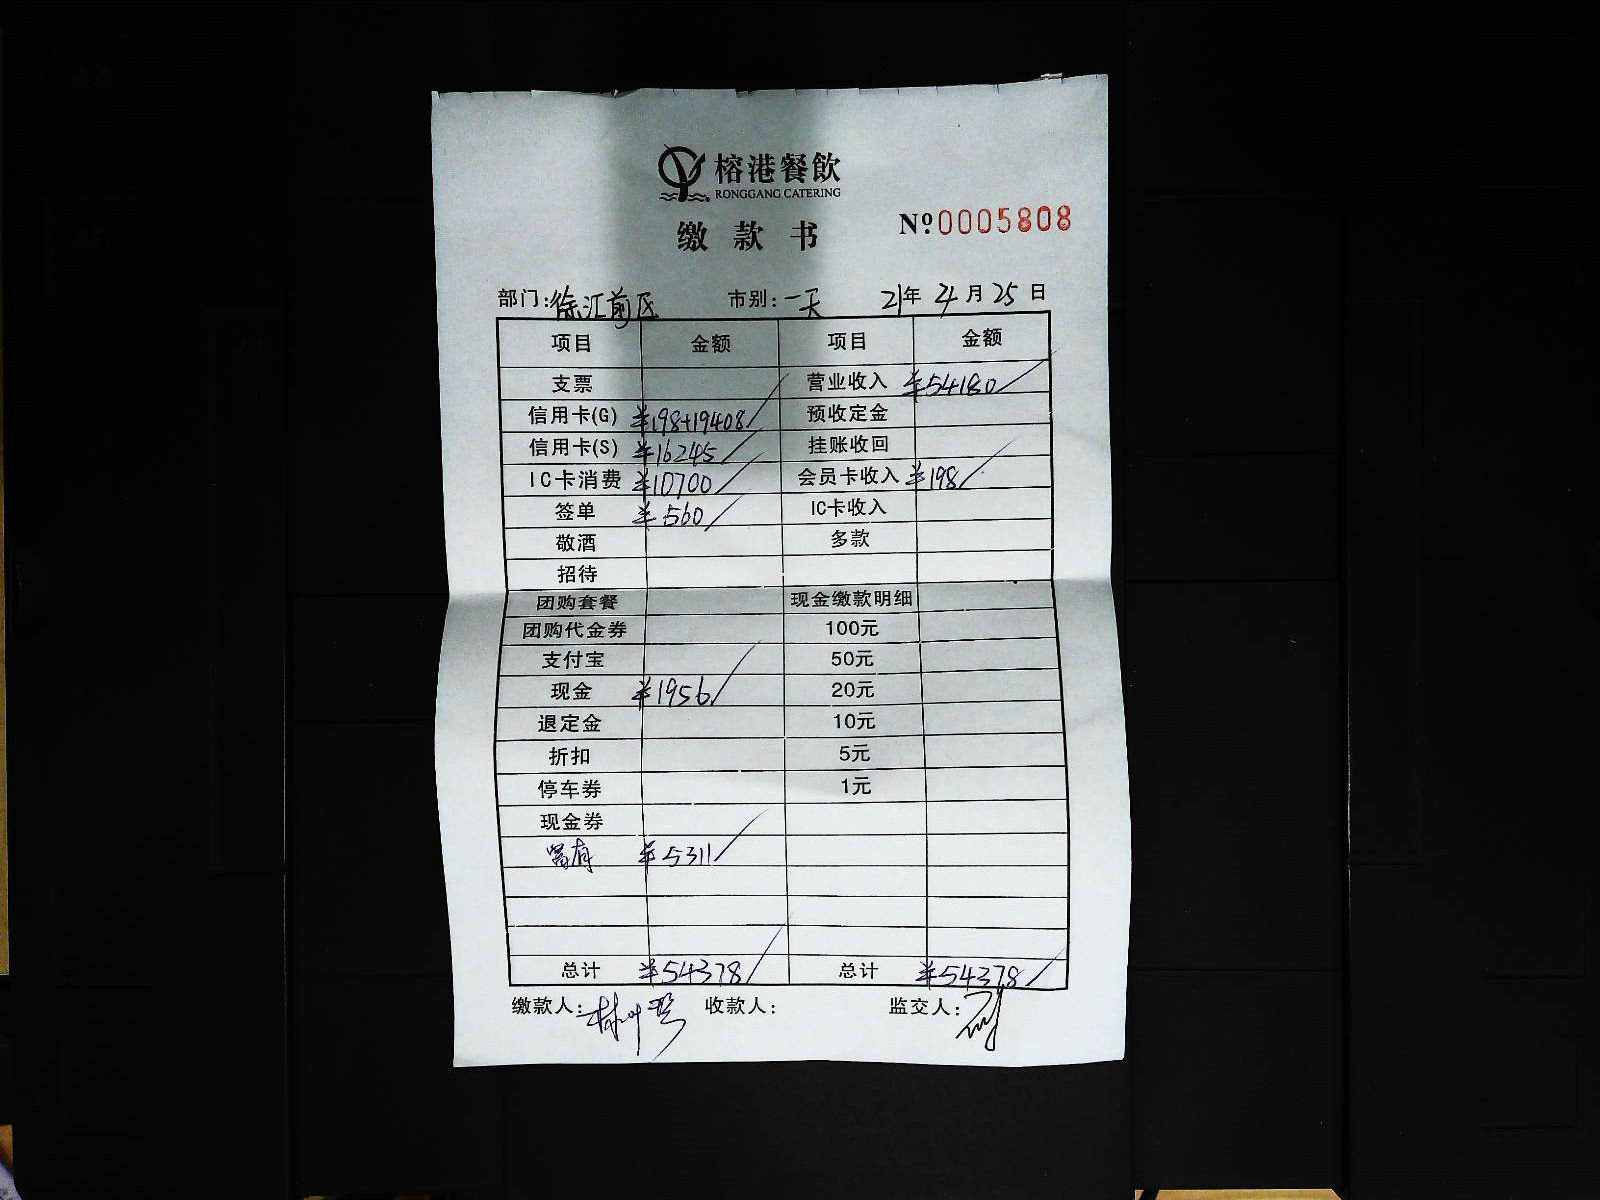 榕港餐飲
RONGGANG CATERING
缴款书
№0005808
部门:徐汇前区 市别:一天 21年4月25日
项目 金额 项目 金额
支票 营业收入 ¥54180
信用卡(G) ¥198+19408 预收定金
信用卡(S) ¥16245 挂账收回
IC卡消费 ¥10700 会员卡收入 ¥198
签单 ¥560 IC卡收入
敬酒 多款
招待
团购套餐 现金缴款明细
团购代金券 100元
支付宝 50元
现金 ¥1956 20元
退定金 10元
折扣 5元
停车券 1元
现金券
¥5311
总计 ¥54378 总计 ¥54378
缴款人: 收款人: 监交人: